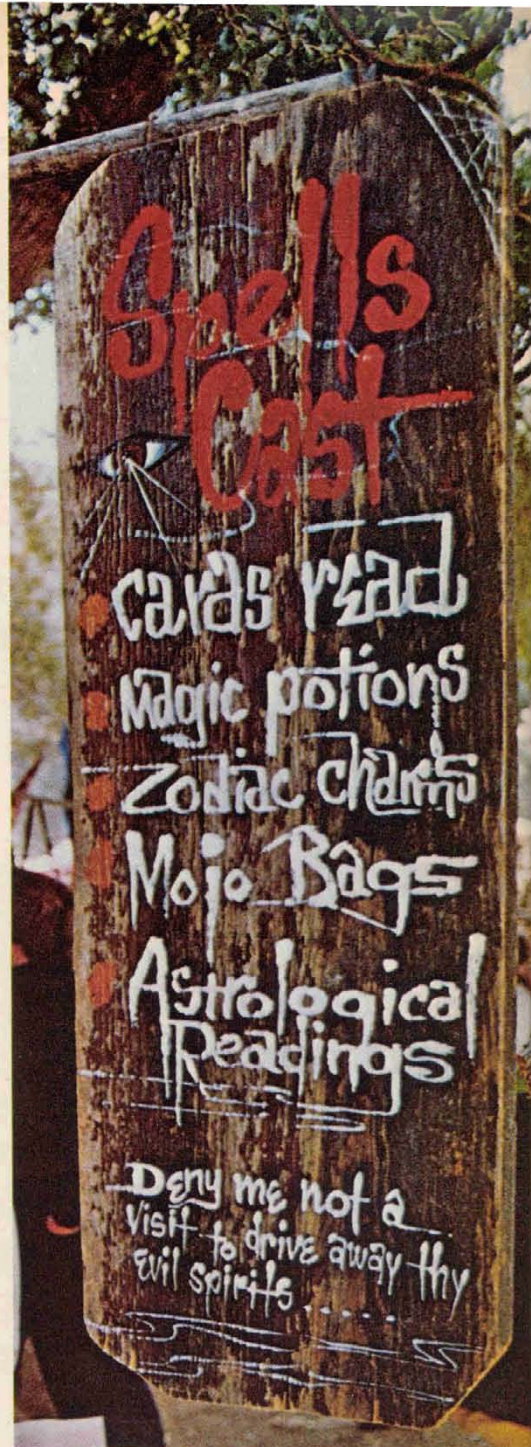 Spells
Cast
cards read
Magic potions
Zodiac charms
Mojo Bags
Astrological
Readings
Deny me not a
visit to drive away thy
evil spirits.....